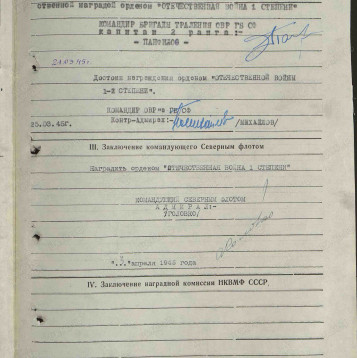 ственной наградой орденом "ОТЕЧЕСТВЕННАЯ ВОЙНА 1 СТЕПЕНИ"
КОМАНДИР БРИГАДЫ ТРАЛЕНИЯ ОВР ГБ СФ
капитан 2 ранга:-
- ПАНФИЛОВ -
21.03.45г.
Достоин награждения орденом "ОТЕЧЕСТВЕННОЙ ВОЙНЫ
1-й СТЕПЕНИ".
КОМАНДИР ОВР'а ГБ СФ
Контр-Адмирал:-
25.03.45г. /МИХАЙЛОВ/
III. Заключение командующего Северным флотом
Наградить орденом "ОТЕЧЕСТВЕННАЯ ВОЙНА 1 СТЕПЕНИ"
КОМАНДУЮЩИЙ СЕВЕРНЫМ ФЛОТОМ
АДМИРАЛ:-
/ГОЛОВКО/
апреля 1945 года
IV. Заключение наградной комиссии НКВМФ СССР.